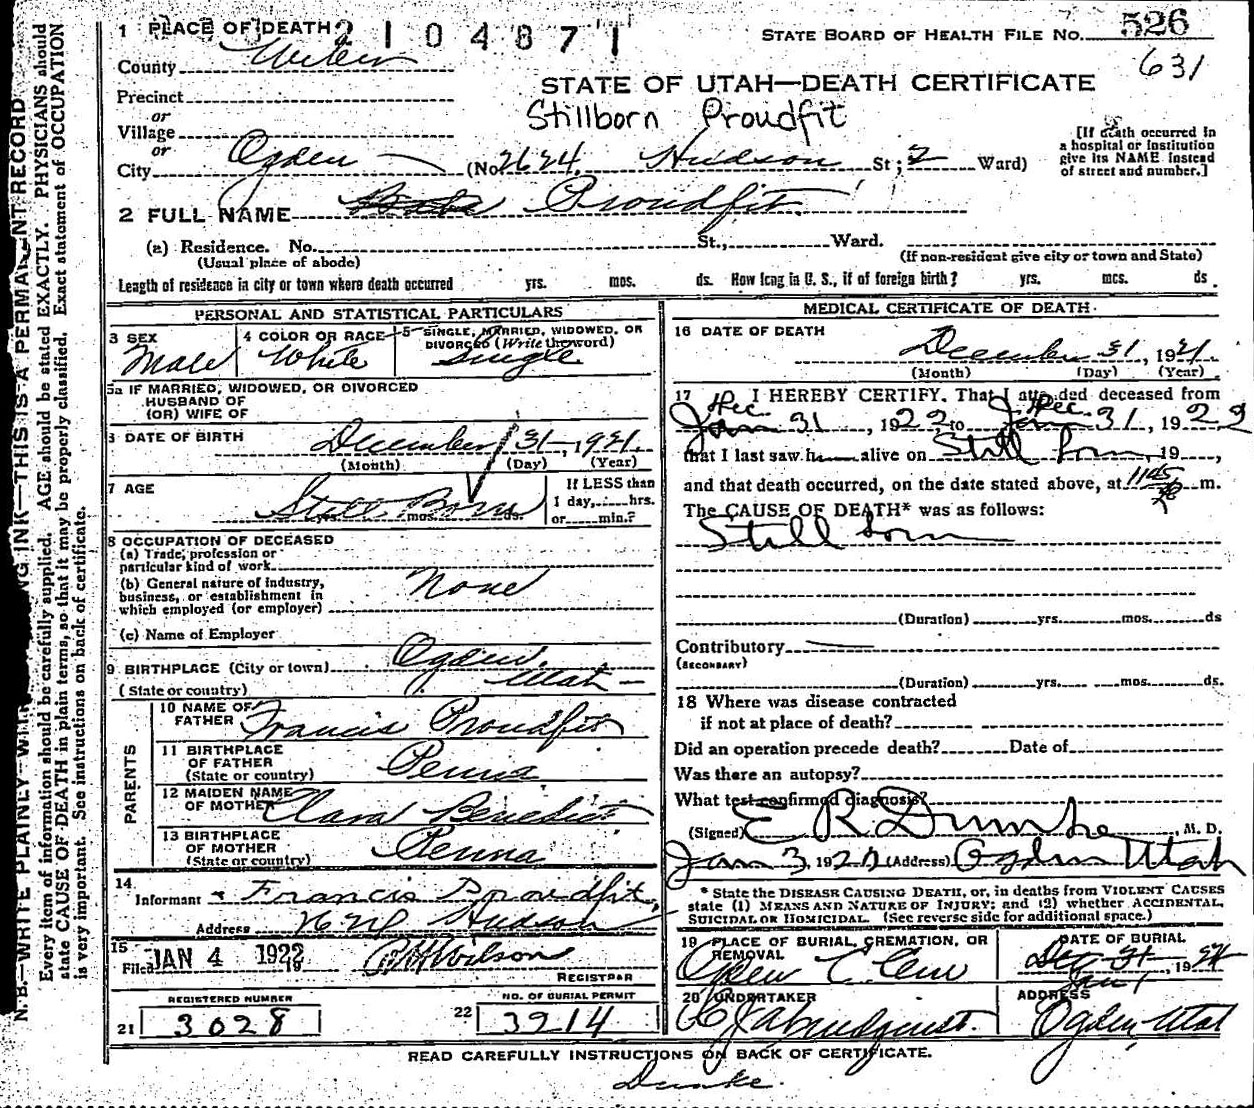 1 PLACE OF DEATH 2104871
STATE BOARD OF HEALTH FILE NO. 526
631
County Weber
STATE OF UTAH—DEATH CERTIFICATE
Precinct
or
Village
Stillborn Proudfit
or
City Ogden (No 2624 Hudson St; 2 Ward)
[If death occurred in
a hospital or institution
give its NAME instead
of street and number.]
2 FULL NAME Baby Proudfit
(a) Residence. No. St., Ward.
(Usual place of abode) (If non-resident give city or town and State)
Length of residence in city or town where death occurred yrs. mos. ds. How long in U. S., if of foreign birth? yrs. mos. ds.
PERSONAL AND STATISTICAL PARTICULARS
3 SEX Male
4 COLOR OR RACE White
5 SINGLE, MARRIED, WIDOWED, OR
DIVORCED (Write the word)
Single
5a IF MARRIED, WIDOWED, OR DIVORCED
HUSBAND OF
(OR) WIFE OF
6 DATE OF BIRTH December 31, 1921.
(Month) (Day) (Year)
7 AGE Still Born
yrs. mos. ds.
If LESS than
1 day, hrs.
or min.?
8 OCCUPATION OF DECEASED
(a) Trade, profession or
particular kind of work
(b) General nature of industry,
business, or establishment in
which employed (or employer)
None
(c) Name of Employer
9 BIRTHPLACE (City or town) Ogden.
(State or country) Utah
PARENTS
10 NAME OF
FATHER Francis Proudfit
11 BIRTHPLACE
OF FATHER
(State or country) Penna
12 MAIDEN NAME
OF MOTHER Clara Benedict
13 BIRTHPLACE
OF MOTHER
(State or country) Penna
14
Informant Francis Proudfit,
Address Hudson
15
Filed JAN 4 1922 19
Wilson
REGISTRAR
REGISTERED NUMBER
21 3028
NO. OF BURIAL PERMIT
22 3214
MEDICAL CERTIFICATE OF DEATH
16 DATE OF DEATH
December 31, 1921.
(Month) (Day) (Year)
17 I HEREBY CERTIFY. That I attended deceased from
Dec. Dec.
Jan 31, 1922 to Jan 31, 1922
that I last saw h alive on Still born, 19
and that death occurred, on the date stated above, at 1145 m.
The CAUSE OF DEATH* was as follows:
Still born
(Duration) yrs. mos. ds
Contributory
(SECONDARY)
(Duration) yrs. mos. ds.
18 Where was disease contracted
if not at place of death?
Did an operation precede death? Date of
Was there an autopsy?
What test confirmed diagnosis?
(Signed) E R Dumke, M. D.
Jan 3, 1922 (Address) Ogden Utah
* State the DISEASE CAUSING DEATH, or, in deaths from VIOLENT CAUSES
state (1) MEANS AND NATURE OF INJURY; and (2) whether ACCIDENTAL,
SUICIDAL OR HOMICIDAL. (See reverse side for additional space.)
19 PLACE OF BURIAL, CREMATION, OR
REMOVAL
Ogden C Cem
DATE OF BURIAL
Dec 31, 192
Jan 1
20 UNDERTAKER
ADDRESS
Ogden, Utah
READ CAREFULLY INSTRUCTIONS ON BACK OF CERTIFICATE.
Dumke.
N. B.—WRITE PLAINLY WITH INK—THIS IS A PERMANENT RECORD
Every item of information should be carefully supplied. AGE should be stated EXACTLY. PHYSICIANS should
state CAUSE OF DEATH in plain terms, so that it may be properly classified. Exact statement of OCCUPATION
is very important. See instructions on back of certificate.